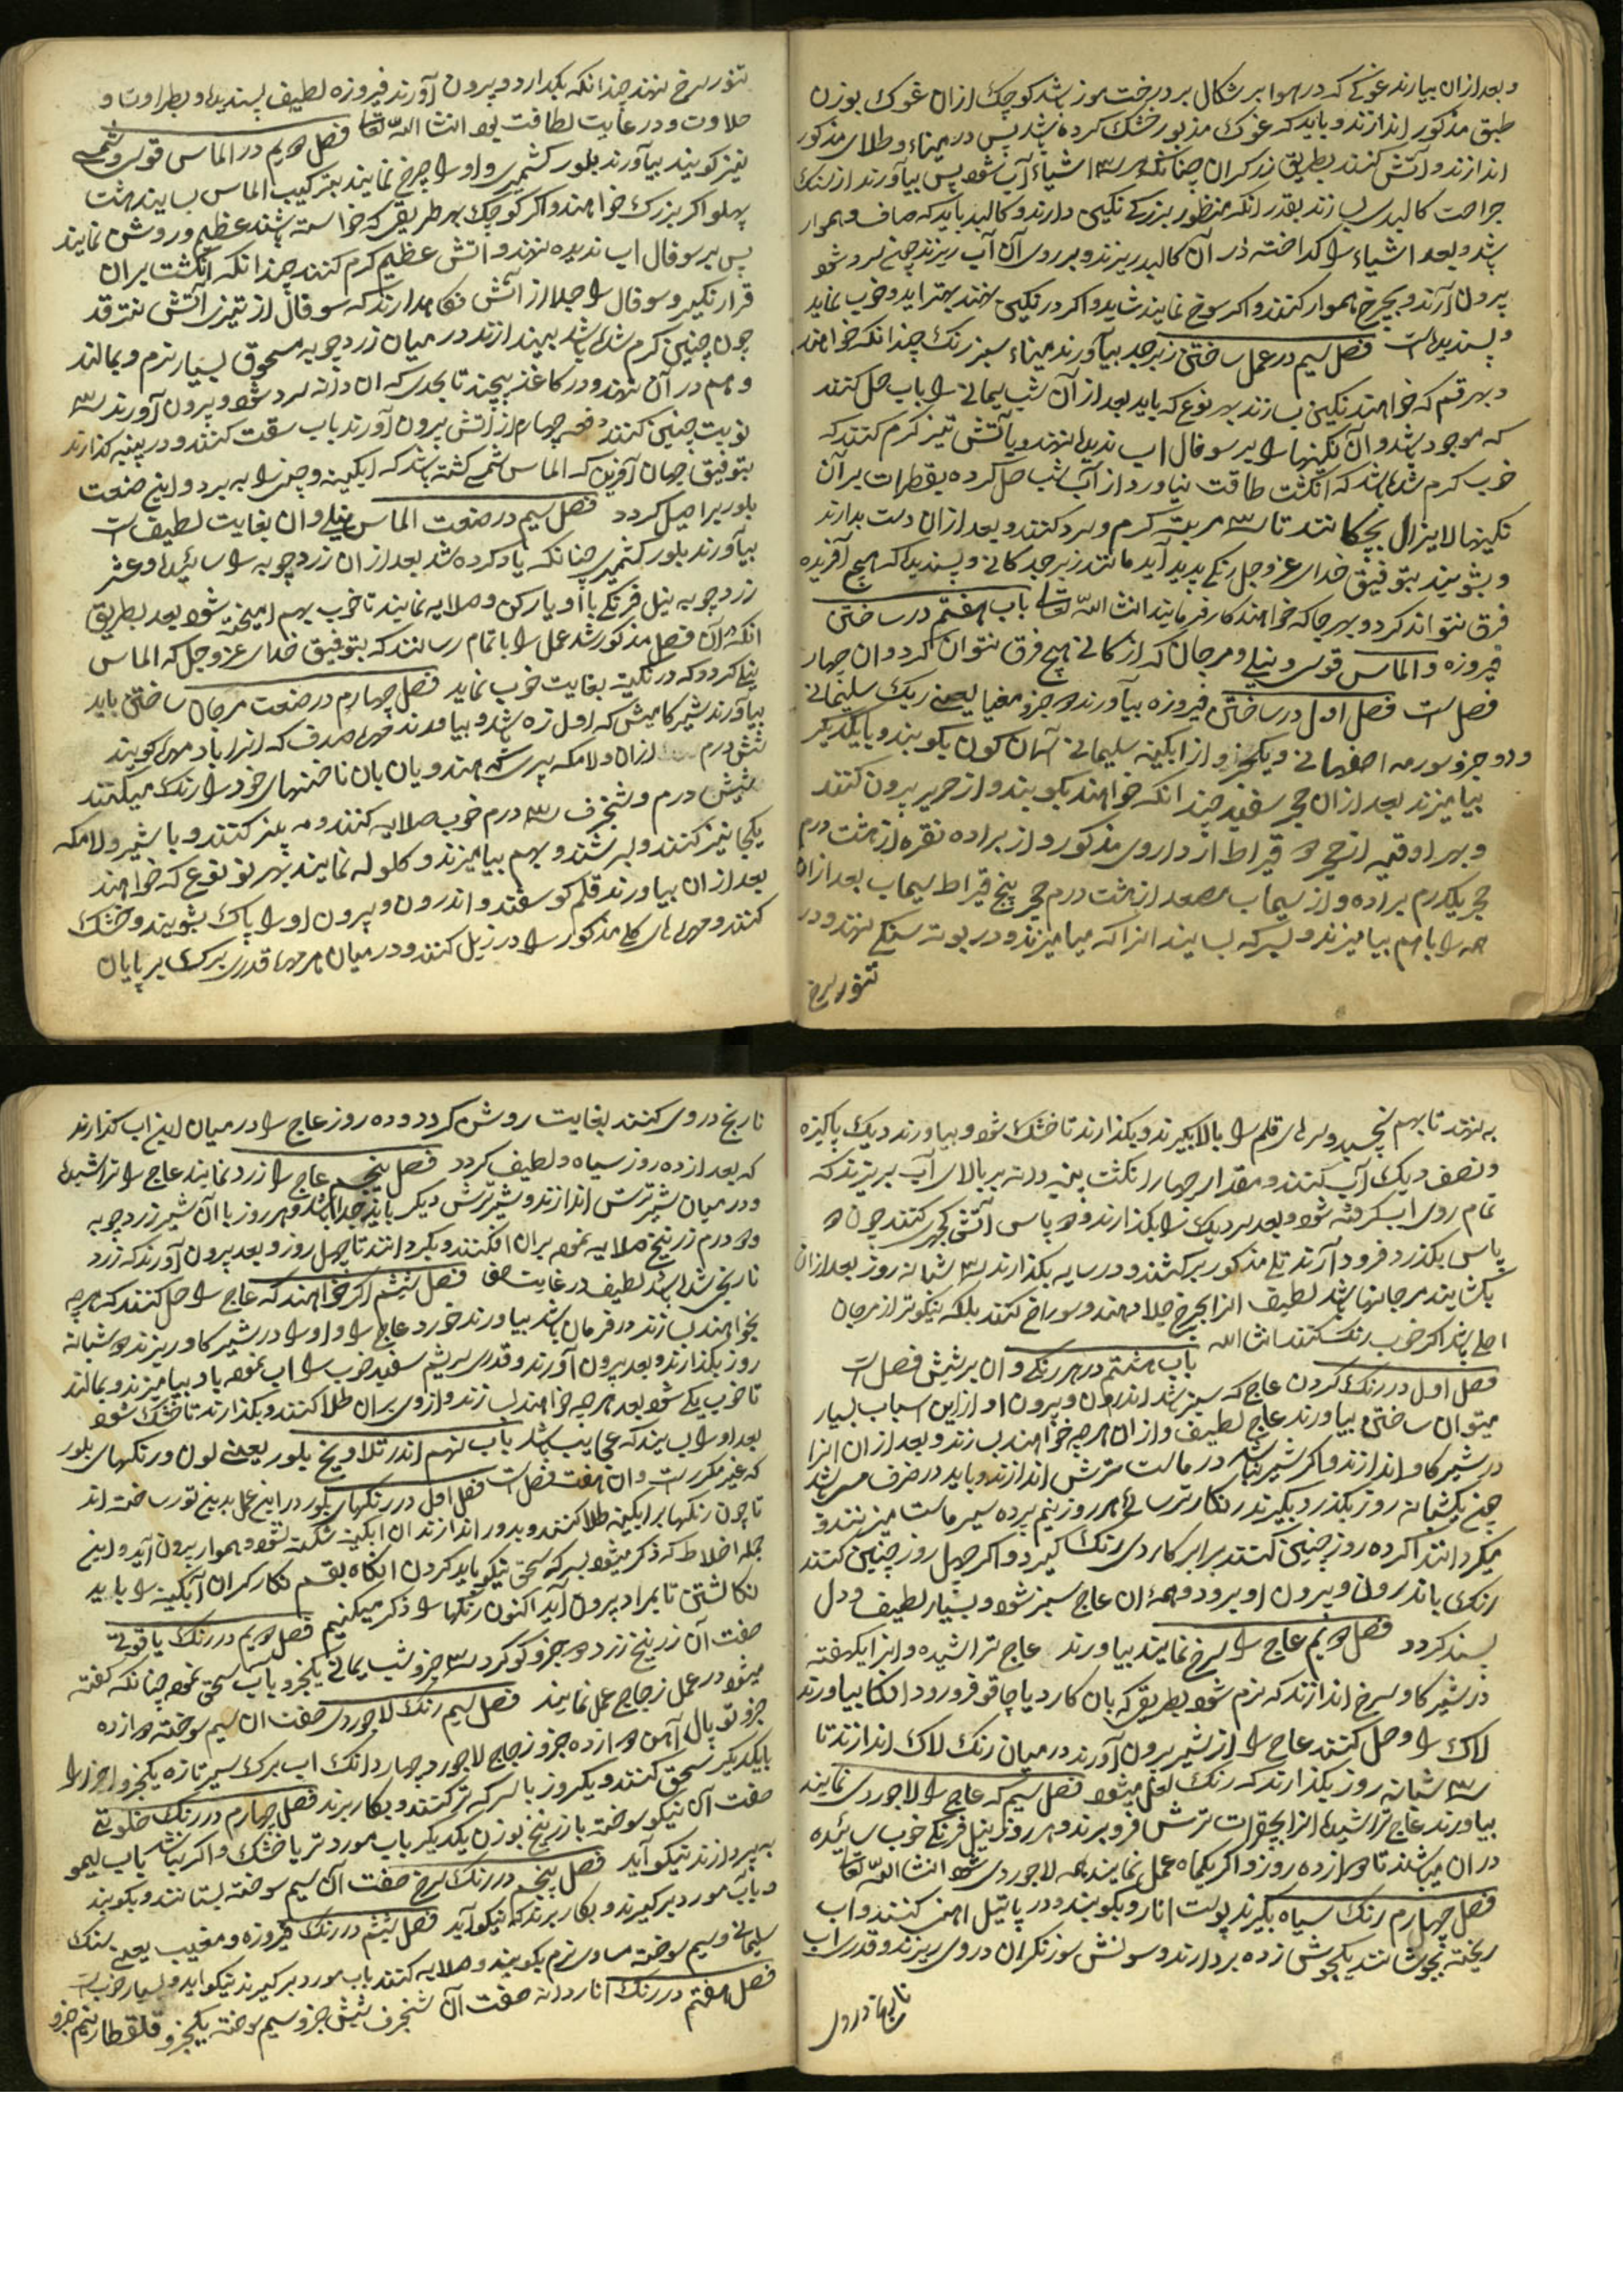 و بعد از ان بیارند غوکی که در هوا برشکال بر درخت موز باشد کوچک از ان غوک بوزن
طبق مذکور اندازند و باید که غوک مذبور خشک کرده باشد پس در میناء و طلای مذکور
اندازند و آتش کنند بطریق زرکران چنانکه هر سه اشیاء آب شود پس بیاورند از سنک
جراحت کالبدی بسازند بقدر انکه منظور بزرکی نکین دارند و کالبد باید که صاف و هموار
باشد و بعد اشیاء را کداخته در آن کالبد ریزند و بر روی آن آب ریزند چون سرد شود
بیرون آرند و بچرخ هموار کنند و اکر سوخ نمایند شاید و اکر در نکین نهند بهتر اید و خوب نماید
و پسندیده است فصل سیم در عمل ساختن زبرجد بیاورند میناء سبز رنک چندانکه خواهند
و بهر قسم که خواهند نکین بسازند بهر نوع که باید بعد از آن شب یمانی را باب حل کنند
که موجود باشد و آن نکینها را بر سوفال اب ندیده نهند و باتش تیز کرم کنند که
خوب کرم شده باشد که انکشت طاقت نیاورد از آب شب حل کرده بقطرات بر آن
نکینها لایزال بچکانند تا سه مرتبه کرم و سرد کنند و بعد از ان دست بدارند
و بشویند بتوفیق خدای عز و جل رنکی پدید آید مانند زبرجد کانی و پسندیده که هیچ آفریده
فرق نتواند کرد و بهر جا که خواهند کار فرمایند انشا الله تعالی باب هفتم در ساختن
فیروزه و الماس قوسی و نیلی و مرجان که از کانی هیچ فرق نتوان کرد و ان چهار
فصل است فصل اول در ساختن فیروزه بیاورند دو جزو مغنیا یعنی ریک سلیمانی
و دو جزو سورمه اصفهانی و یکجزو از ابکینه سلیمانی آسمان کون بکوبند و بایکدیکر
بیامیزند بعد از ان حجر سفید چندانکه خواهند بکوبند و از حریر بیرون کنند
و بهر اوقیه از حجر دو قیراط از داروی مذکور و از براده نقره از هشت درم
حجر یکدرم براده و از سیماب مصعد از هشت درم حجر پنج قیراط سیماب بعد از ان
همه را باهم بیامیزند و بسرکه بسایند انرا که میامیزند و در بوته سنکی نهند و در
تنور سرخ
تنور سرخ نهند چندانکه بکدازد و بیرون آورند فیروزه لطیف پسندیده و بطراوت و
حلاوت و در غایت لطافت بود انشا الله تعالی فصل دویم در الماس قوسی و شمسی
نیز کویند بیاورند بلور کشمیری و او را چرخ نمایند بترکیب الماس بسایند هشت
پهلو اکر بزرک خواهند و اکر کوچک بهر طریقی که خواسته باشند عظیم و روشن نمایند
پس بر سوفال اب ندیده نهند و اتش عظیم کرم کنند چندانکه انکشت بر ان
قرار نکیرد و سوفال را جدا از آتش نکاهدارند که سوفال از تیزی آتش نترقد
چون چنین کرم شده باشد بیندازند در میان زرد چوبه مسحوق بسیار نرم و بمالند
و هم در آن نهند و در کاغذ پیچند تا بحدی که ان دانه سرد شود و بیرون آورند سه
نوبت چنین کنند دفعه چهارم از اتش بیرون آورند باب سقت کنند و در پنبه کذارند
بتوفیق جهان آفرین که الماس شمسی کشته باشد که ابکینه و چینی را به برد و این صنعت
بلور بر اصیل کردد فصل سیم در صنعت الماس نیلی و ان بغایت لطیف است
بیاورند بلور کشمیری چنانکه یاد کرده شد بعد از ان زرد چوبه را سائیده و عشر
زرد چوبه نیل فرنکی با او یار کن و صلایه نمایند تا خوب بهم امیخته شود بعد بطریق
انکه در آن فصل مذکور شد عمل را باتمام رسانند که بتوفیق خدای عز و جل که الماس
نیلی کردد که در نکین بغایت خوب نماید فصل چهارم در صنعت مرجان ساختن باید
بیاورند شیر کامیش که اول زه باشد و بیاورند مهره صدف که انرا باد مهره کویند
شش درم از ان و لامکه پرسته هندویان بان ناخنهای خود را رنک میکنند
شیش درم و شنجرف سه درم خوب صلایه کنند و مه بیز کنند و با شیر و لامکه
یکجا نیز کنند و بسرشند و بهم بیامیزند و کلوله نمایند بهر نوع که خواهند
بعد از ان بیاورند قلم کوسفند و اندرون و بیرون او را پاک بشویند و خشک
کنند و مهرهای کلی مذکور را در زبل کنند و در میان هر مهره قدری برک بر پایان
به نهند تا بهم نچسبد و سرهای قلم را بالا بکیرند و بکذارند تا خشک شود و بیاورند دیک پاکیزه
و نصف دیک آب کنند و مقدار چهار انکشت پنبه دانه بر بالای آب بریزند که
تمام روی اب کرفته شود و بعد سر دیک را بکذارند و دو پاس آتش کچری کنند چون دو
پاس بکذرد فرود آرند تلی مذکور برکشند و در سایه بکذارند سه شبانه روز بعد از ان
بکشایند مرجانها باشد لطیف انرا بچرخ جلا دهند و سوراخ کنند بلکه نیکوتر از مرجان
اصلی باشد اکر خوب رنک کنند انشا الله باب هشتم در هر رنکی و ان بر شش فصل است
فصل اول در رنک کردن عاج که سبز باشد اندرون و بیرون او و از این اسباب بسیار
میتوان ساختن بیاورند عاج لطیف و از ان هرچه خواهند بسازند و بعد از ان انرا
در شیر کاو اندازند و اکر شیر نباشد در ماست ترش اندازند و باید در ظرف مس باشد
چون یکشبانه روز بکذرد بکیرند زنکار ترسائی هر روز نیم پرده سیر ماست میزنند و
میکردانند اکر ده روز چنین کنند برابر کاردی رنک کیرد و اکر چهل روز چنین کنند
رنک باندرون و بیرون او برود و همه ان عاج سبز شود و بسیار لطیف و دل
پسند کردد فصل دویم عاج را سرخ نمایند بیاورند عاج تراشیده و انرا یکهفته
در شیر کاو سرخ اندازند که نرم شود بطریقی که بان کارد یا چاقو فرو رود انکاه بیاورند
لاک را و حل کنند عاج را از شیر بیرون آورند در میان رنک لاک اندازند تا
سه شبانه روز بکذارند که رنک لعل میشود فصل سیم که عاج را لاجوردی نمایند
بیاورند عاج تراشیده انرا بجغرات ترش فرو برند و هر روز نیل فرنکی خوب سائیده
در ان میپاشند تا دوازده روز و اکر یکماه عمل نمایند همه لاجوردی شود انشا الله تعالی
فصل چهارم رنک سیاه بکیرند پوست انار و بکوبند و در پاتیل اهنی کنند و اب
ریخته بجوشانند یکجوش زده بردارند و سونش سوزنکران در وی ریزند و قدری اب
نارنج در وی
نارنج در وی کنند بغایت روشن کردد و ده روز عاج را در میان این اب کذارند
که بعد از ده روز سیاه و لطیف کردد فصل پنجم عاج را زرد نمایند عاج را تراشیده
و در میان شیر ترش اندازند و شیر ترش دیکر باید جدا باشد و هر روز با آن شیر زرد چوبه
و دو درم زرنیخ صلایه نموده بران افکنند و بکردانند تا چهل روز و بعد بیرون آورند که زرد
نارنجی شده باشد لطیف در غایت صفا فصل ششم اکر خواهند که عاج را حل کنند که هرچه
بخواهند بسازند در فرمان باشد بیاورند خورد عاج را و او را در شیر کاو ریزند دو شبانه
روز بکذارند و بعد بیرون آورند و قدری سریشم سفید خوب را اب نموده با او بیامیزند و بمالند
تا خوب یکی شود بعد هرچه خواهند بسازند و از وی بر ان طلا کنند و بکذارند تا خشک شود
بعد او را ببیند که عجایب باشد باب نهم اندر تلاویخ بلور یعنی لون و رنکهای بلور
که غیر مکرر است و ان هفت فصل است فصل اول در رنکهای بلور در این عمل بدین تور ساخته اند
تا چون رنکها بر ابکین طلا کنند و بدور اندازند ان ابکینه شکسته نشود و هموار بیرون آید و این
جمله اخلاط که ذکر میشود بسرکه سحق نیکو باید کردن انکاه بقلم نکارکران آبکینه را باید
نکاشتن تا بمراد بیرون آید اکنون رنکها را ذکر میکنیم فصل دویم در رنک یاقوتی
صفت آن زرنیخ زرد دو جزو کوکرد سه جزو شب یمانی یکجزو باب سحق نموده چنانکه کفته
میشود در عمل زجاج عمل نمایند فصل سیم رنک لاجوردی صفت ان سیم سوخته دوازده
جزو توبال آهن دوازده جزو زجاج لاجورد چهار دانک اب برک سیر تازه یکجزو اجزا را
بایکدیکر سحق کنند و یکروز با سرکه تر کنند و بکار برند فصل چهارم در رنک خلوتی
صفت آن نیکو سوخته با زرنیخ بوزن یکدیکر باب مورد تر یا خشک و اکر نباشد باب لیمو
به پردازند نیکو آید فصل پنجم در رنک سرخ صفت آن سیم سوخته بستانند و بکوبند
و باب مورد برکیرند و بکار برند که نیکو آید فصل ششم در رنک فیروزه و مغنیب یعنی سنک
سلیمانی و سیم سوخته مساوی نرم بکوبند و صلایه کنند باب مورد برکیرند نیکو اید و بسیار خوب است
فصل هفتم در رنک انار دانه صفت آن شنجرف شش جزو سیم سوخته یکجزو قلقطار نیم جزو